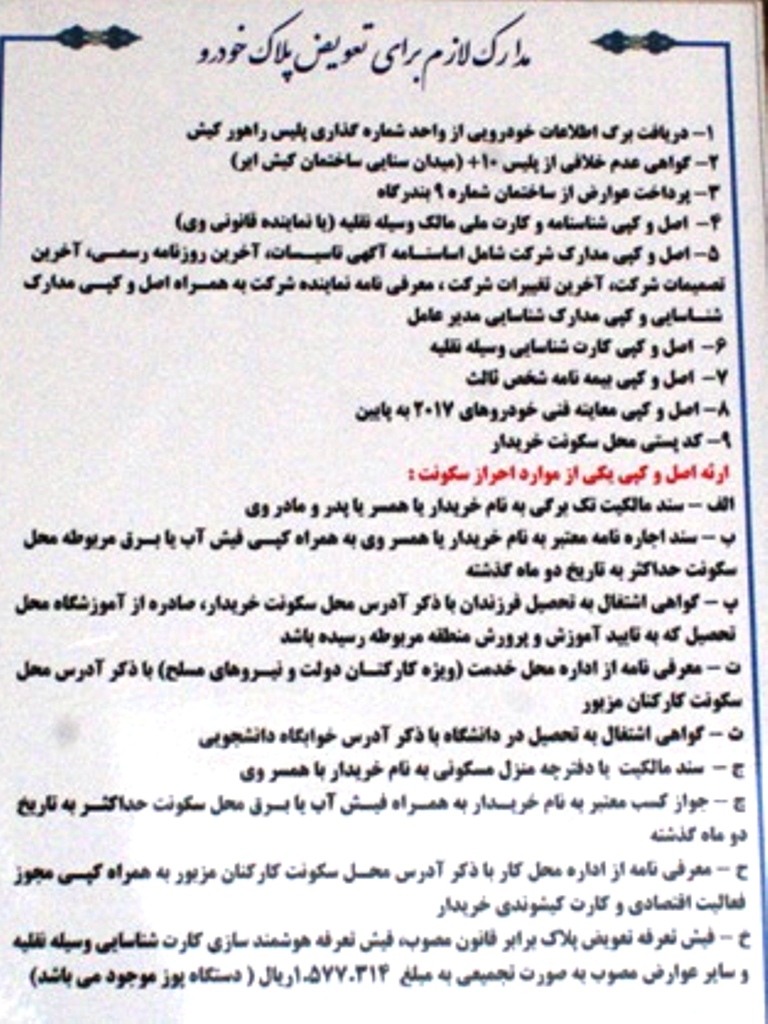 مدارک لازم برای تعویض پلاک خودرو
۱- دریافت برگ اطلاعات خودرویی از واحد شماره گذاری پلیس راهور کیش
۲- گواهی عدم خلافی از پلیس ۱۰+ (میدان سنایی ساختمان کیش ایر)
۳- پرداخت عوارض از ساختمان شماره ۹ بندرگاه
۴- اصل و کپی شناسنامه و کارت ملی مالک وسیله نقلیه (یا نماینده قانونی وی)
۵- اصل و کپی مدارک شرکت شامل اساسنامه آگهی تاسیسات، آخرین روزنامه رسمی، آخرین
تصمیمات شرکت، آخرین تغییرات شرکت ، معرفی نامه نماینده شرکت به همراه اصل و کپی مدارک
شناسایی و کپی مدارک شناسایی مدیر عامل
۶- اصل و کپی کارت شناسایی وسیله نقلیه
۷- اصل و کپی بیمه نامه شخص ثالث
۸- اصل و کپی معاینه فنی خودروهای ۲۰۱۷ به پایین
۹- کد پستی محل سکونت خریدار
ارئه اصل و کپی یکی از موارد احراز سکونت :
الف - سند مالکیت تک برگی به نام خریدار یا همسر یا پدر و مادر وی
ب - سند اجاره نامه معتبر به نام خریدار یا همسر وی به همراه کپی فیش آب یا برق مربوطه محل
سکونت حداکثر به تاریخ دو ماه گذشته
پ - گواهی اشتغال به تحصیل فرزندان با ذکر آدرس محل سکونت خریدار، صادره از آموزشگاه محل
تحصیل که به تایید آموزش و پرورش منطقه مربوطه رسیده باشد
ت - معرفی نامه از اداره محل خدمت (ویژه کارکنان دولت و نیروهای مسلح) با ذکر آدرس محل
سکونت کارکنان مزبور
ث - گواهی اشتغال به تحصیل در دانشگاه با ذکر آدرس خوابگاه دانشجویی
ج - سند مالکیت یا دفترچه منزل مسکونی به نام خریدار یا همسر وی
چ - جواز کسب معتبر به نام خریدار به همراه فیش آب یا برق محل سکونت حداکثر به تاریخ
دو ماه گذشته
ح - معرفی نامه از اداره محل کار با ذکر آدرس محل سکونت کارکنان مزبور به همراه کپی مجوز
فعالیت اقتصادی و کارت کیشوندی خریدار
خ - فیش تعرفه تعویض پلاک برابر قانون مصوب، فیش تعرفه هوشمند سازی کارت شناسایی وسیله نقلیه
و سایر عوارض مصوب به صورت تجمیعی به مبلغ ۱.۵۷۷.۳۱۴ریال ( دستگاه پوز موجود می باشد)